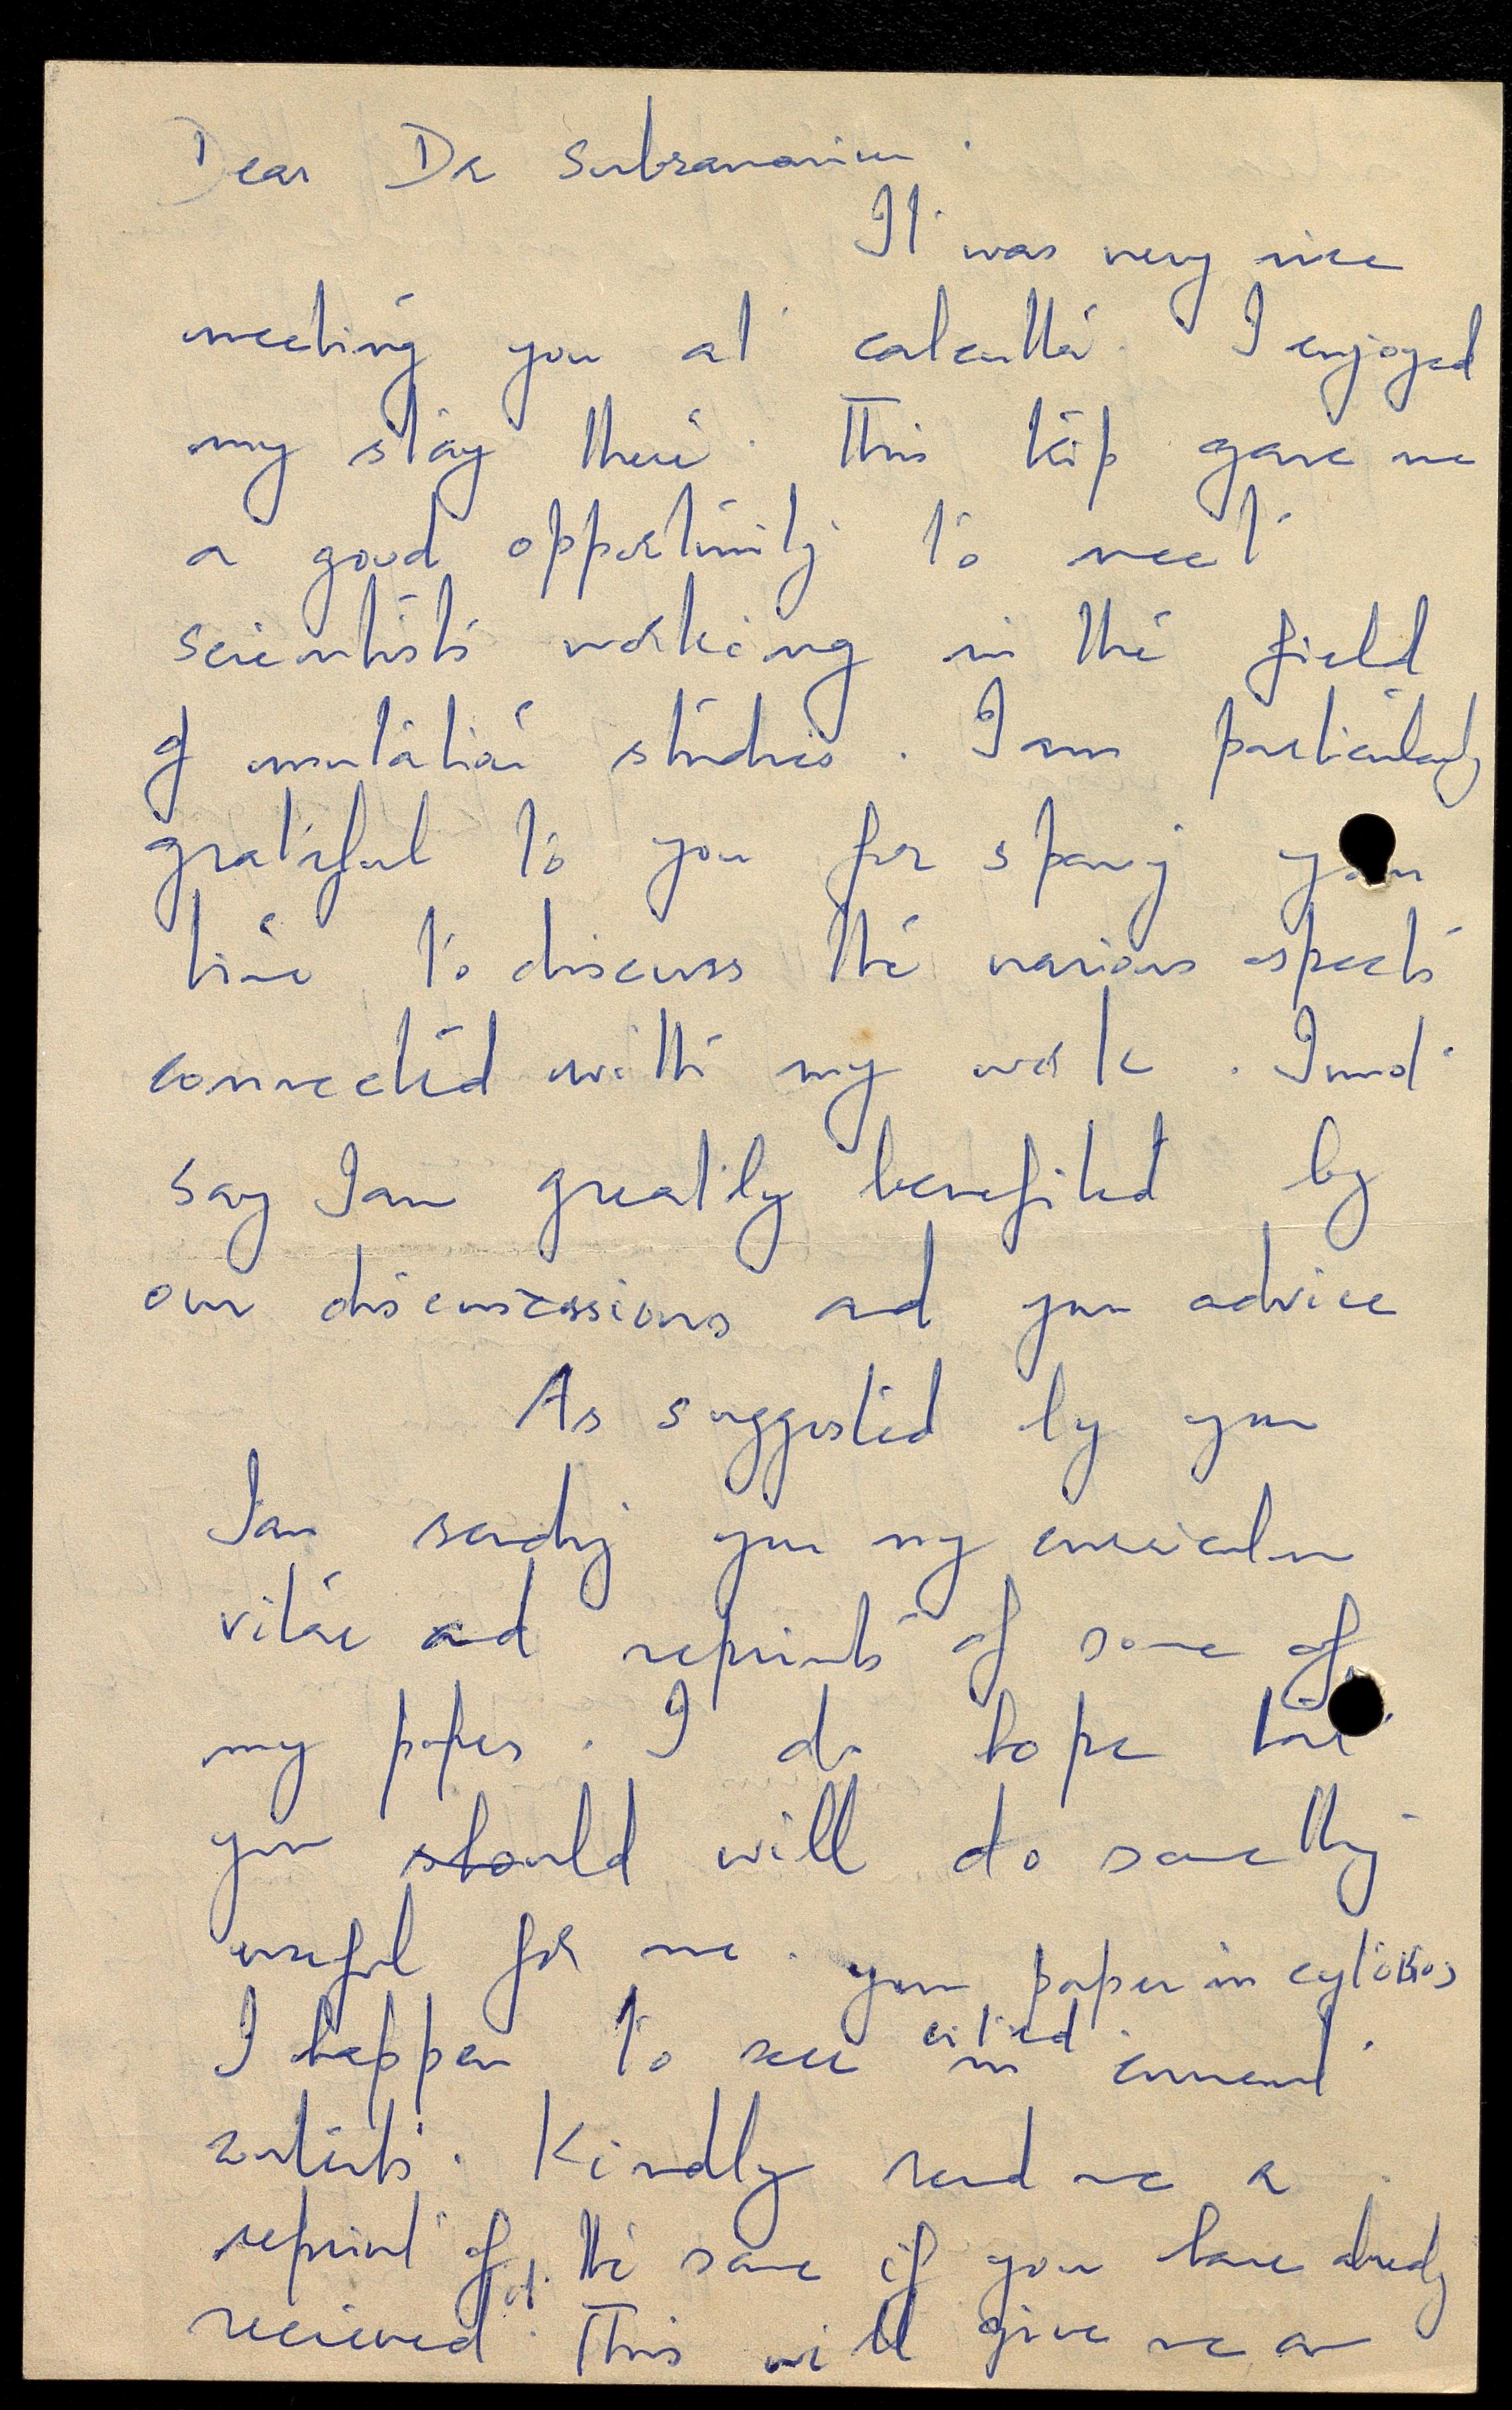 Dear Dr Subramanian.
It was very nice
meeting you at calcutta. I enjoyed
my stay there. This trip gave me
a good opportunity to meet
scientists working in the field
of mutation studies. I am particularly
grateful to you for sparing your
time to discuss the various aspects
connected with my work. I must
say I am greatly benefited by
our discussions and your advice
As suggested by you
I am sending you my curriculum
vitae and reprints of some of
my papers. I do hope that
you should will do something
useful for me. your paper in cytologia
I happen to see cited in current
contents. Kindly send me a
reprint of the same if you have already
recieved it. This will give me an